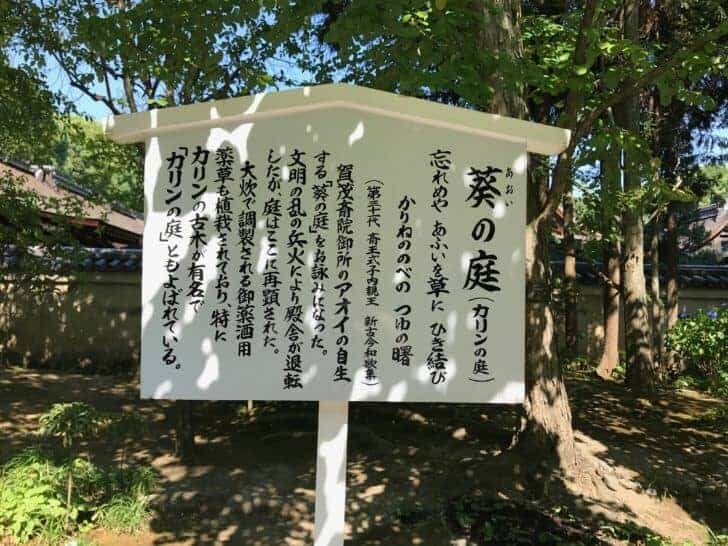 葵の庭（カリンの庭）
あおい
忘れめや あふいを草に ひき結び
かりねののべの つゆの曙
（第三十代 斎王式子内親王 新古今和歌集）
賀茂斎院御所のアオイの自生
する「葵の庭」をお詠みになった。
文明の乱の兵火により殿舎が退転
したが、庭はここに再顕された。
大炊で調製される御薬酒用
薬草も植栽されており、特に
カリンの古木が有名で
「カリンの庭」ともよばれている。